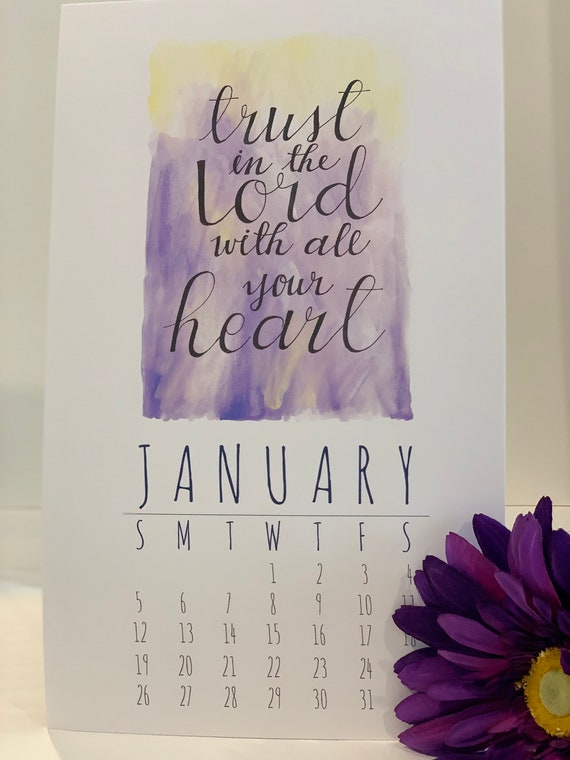 trust
in the
Lord
with all
your
heart
JANUARY
S M T W T F S
1 2 3 4
5 6 7 8 9 10 11
12 13 14 15 16 17 18
19 20 21 22 23 24
26 27 28 29 30 31